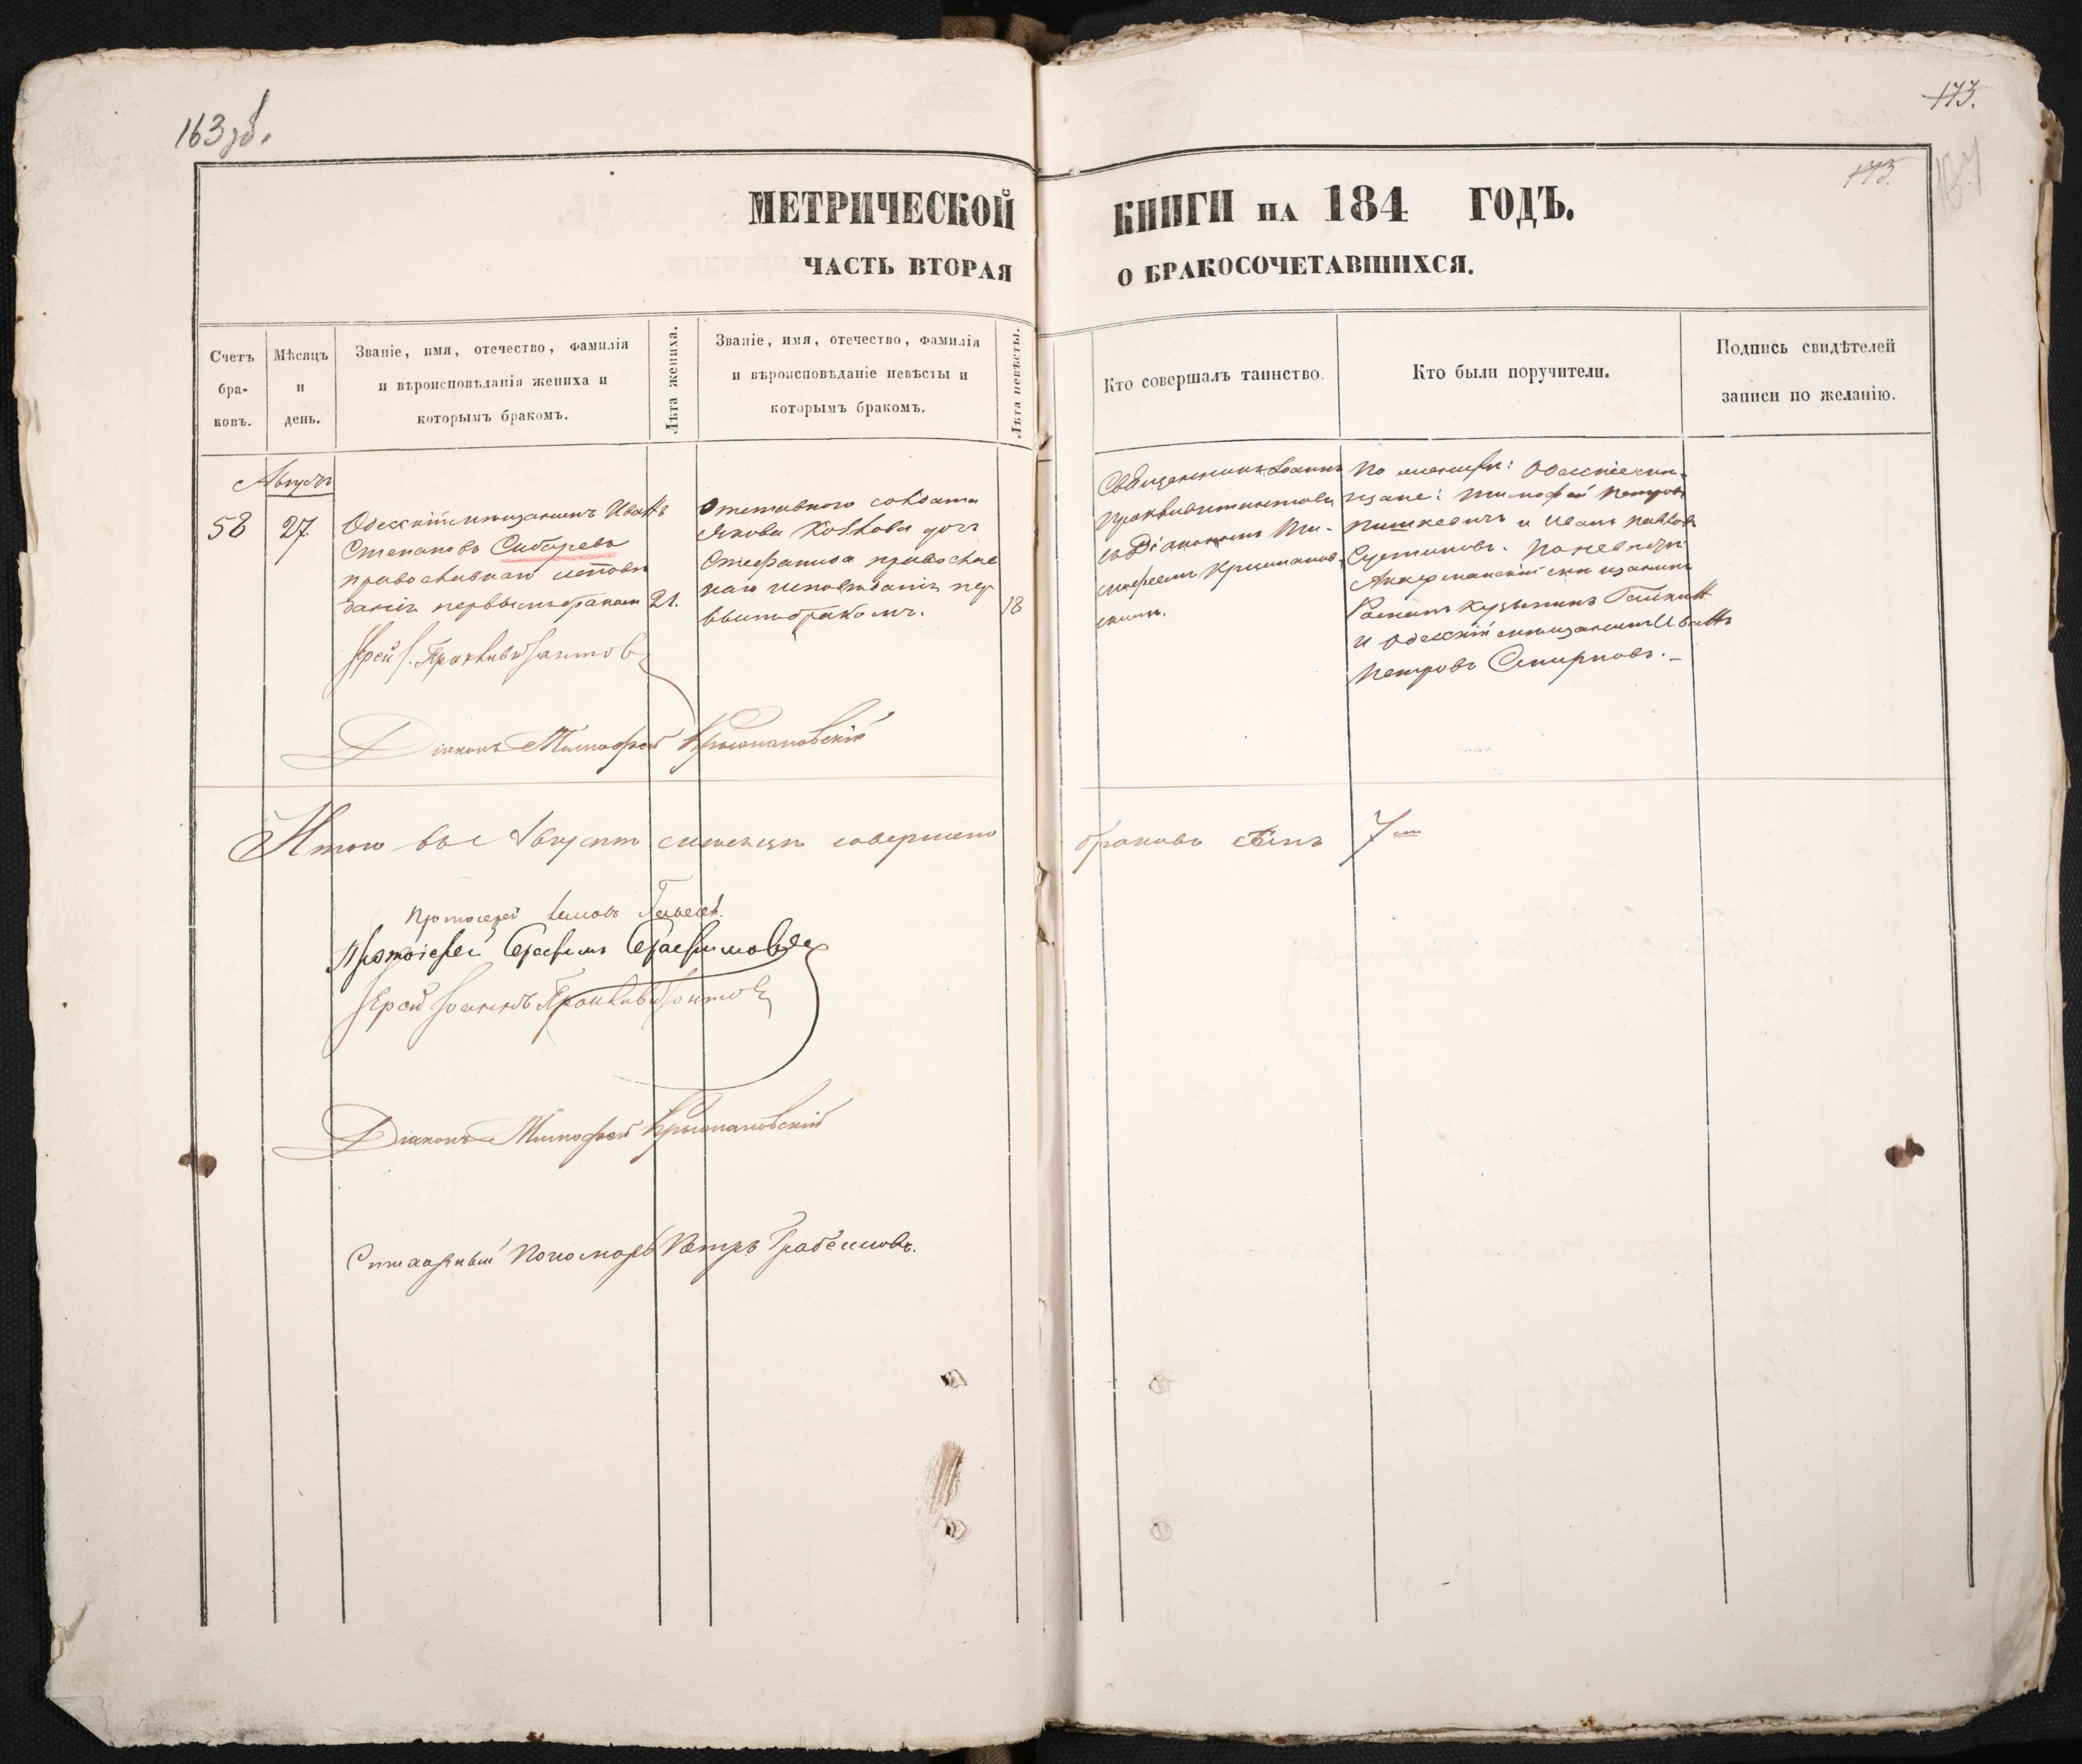 163 об.
173.
173.
МЕТРИЧЕСКОЙ КНИГИ НА 184 ГОДЪ.
ЧАСТЬ ВТОРАЯ О БРАКОСОЧЕТАВШИХСЯ.
Счетъ
бра-
ковъ.
Мѣсяцъ
и
день.
Званіе, имя, отечество, фамилія
и вѣроисповѣданія жениха и
которымъ бракомъ.
Лѣта жениха.
Званіе, имя, отечество, фамилія
и вѣроисповѣданіе невѣсты и
которымъ бракомъ.
Лѣта невѣсты.
Кто совершалъ таинство.
Кто были поручители.
Подпись свидѣтелей
записи по желанію.
Августъ
58
27
Одесскій мѣщанинъ Иванъ
Степановъ Сибирев
православнаго исповѣ
данія первымъ бракомъ
21.
Отставного солдата
Якова Козлова дочь
Стефанида православ
наго исповѣданія пер
вымъ бракомъ.
18
Священникъ Іоаннъ
съ Діакономъ Ти-
мофеемъ Крыжанов
скимъ.
По женихѣ: Одесскіе мѣ-
щане: Тимофей Петровъ
и Иванъ Павловъ
По невѣстѣ:
Аккерманскій мѣщанинъ
Романъ Кузьминъ
и Одесскій мѣщанинъ Иванъ
Петровъ Смирновъ.
Іерей І.
Діаконъ Тимофей Крыжановскій
Итого въ Августѣ мѣсяцѣ совершено браковъ семь 7
Протоіерей
Протоіерей Серафимъ Серафимовъ
Іерей Іоаннъ
Діаконъ Тимофей Крыжановскій
Пономарь Петръ